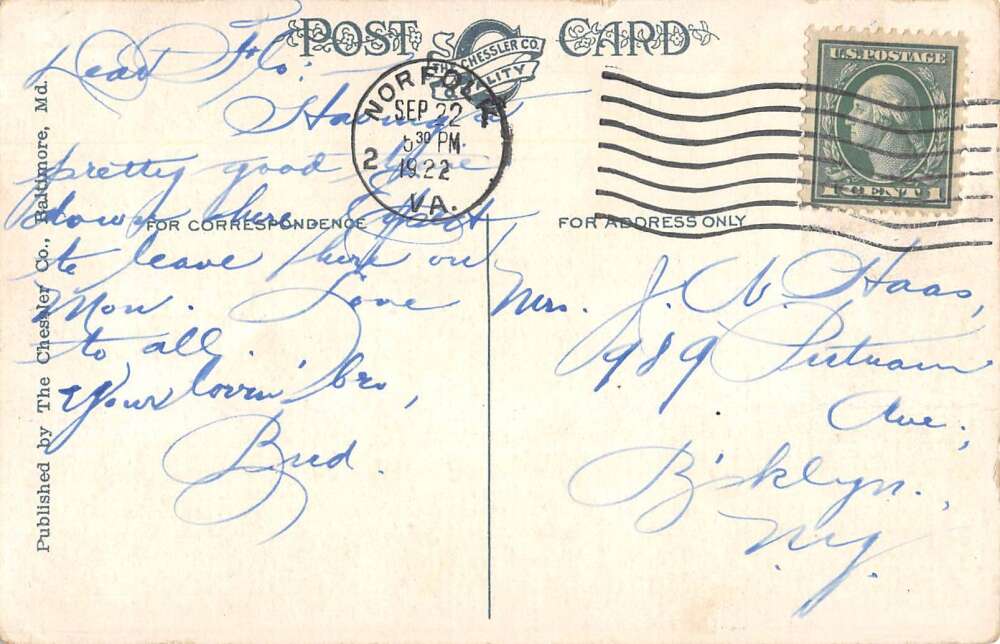 POST CARD
THE CHESSLER CO.
QUALITY
NORFOLK
SEP 22
5 30 PM
1922
2
VA.
U.S. POSTAGE
1 CENT 1
FOR CORRESPONDENCE
FOR ADDRESS ONLY
Published by The Chessler Co., Baltimore, Md.
Dear Flo:
Having a
pretty good time
down here. Expect
to leave here on
Mon. Love
to all.
Your lovin' bro,
Bud.
Mrs. J. N. Haas,
989 Putnam
Ave.,
B'klyn.,
N.Y.